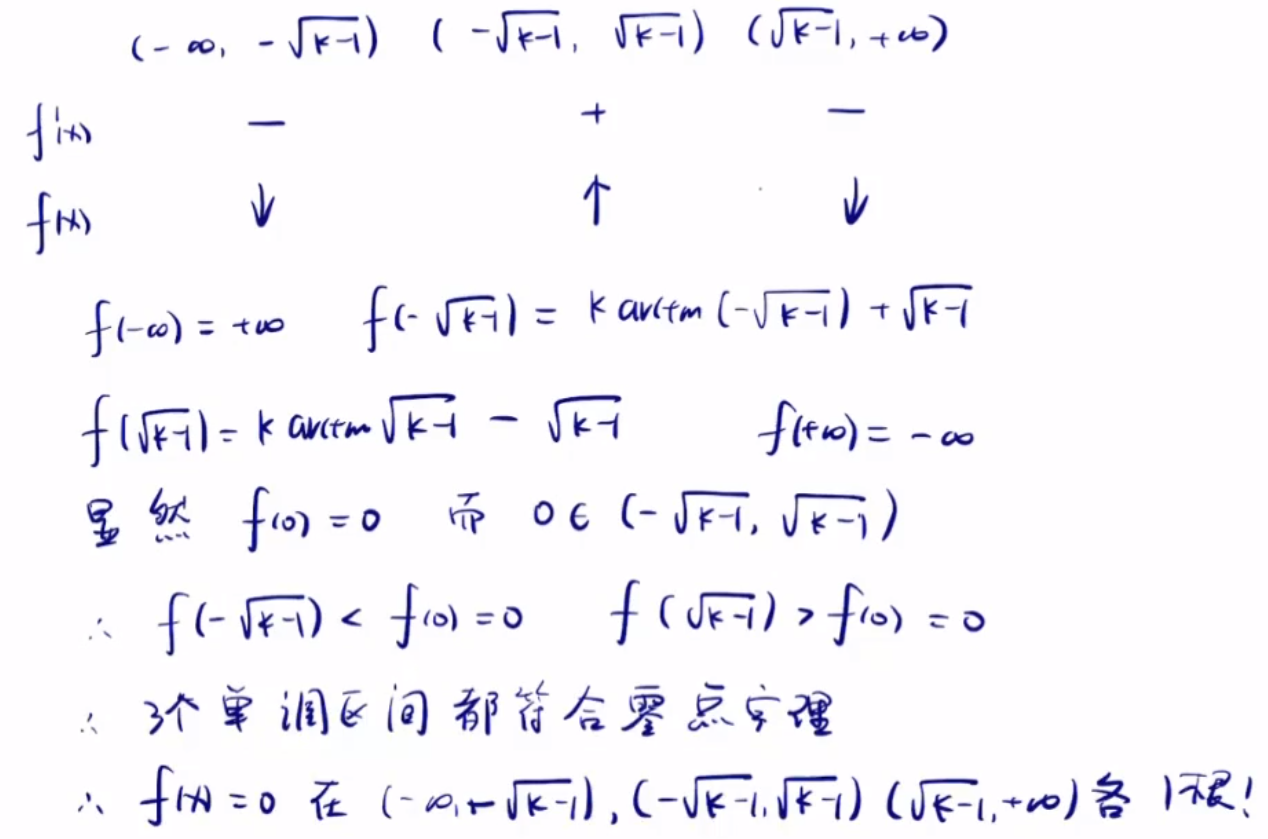 (-∞, -√(k-1)) (-√(k-1), √(k-1)) (√(k-1), +∞)
f'(x) - + -
f(x) ↓ ↑ ↓
f(-∞) = +∞ f(-√(k-1)) = k arctan (-√(k-1)) + √(k-1)
f(√(k-1)) = k arctan √(k-1) - √(k-1) f(+∞) = -∞
显然 f(0) = 0 而 0 ∈ (-√(k-1), √(k-1))
∴ f(-√(k-1)) < f(0) = 0 f(√(k-1)) > f(0) = 0
∴ 3个单调区间都符合零点定理
∴ f(x) = 0 在 (-∞, -√(k-1)), (-√(k-1), √(k-1)) (√(k-1), +∞) 各1根!